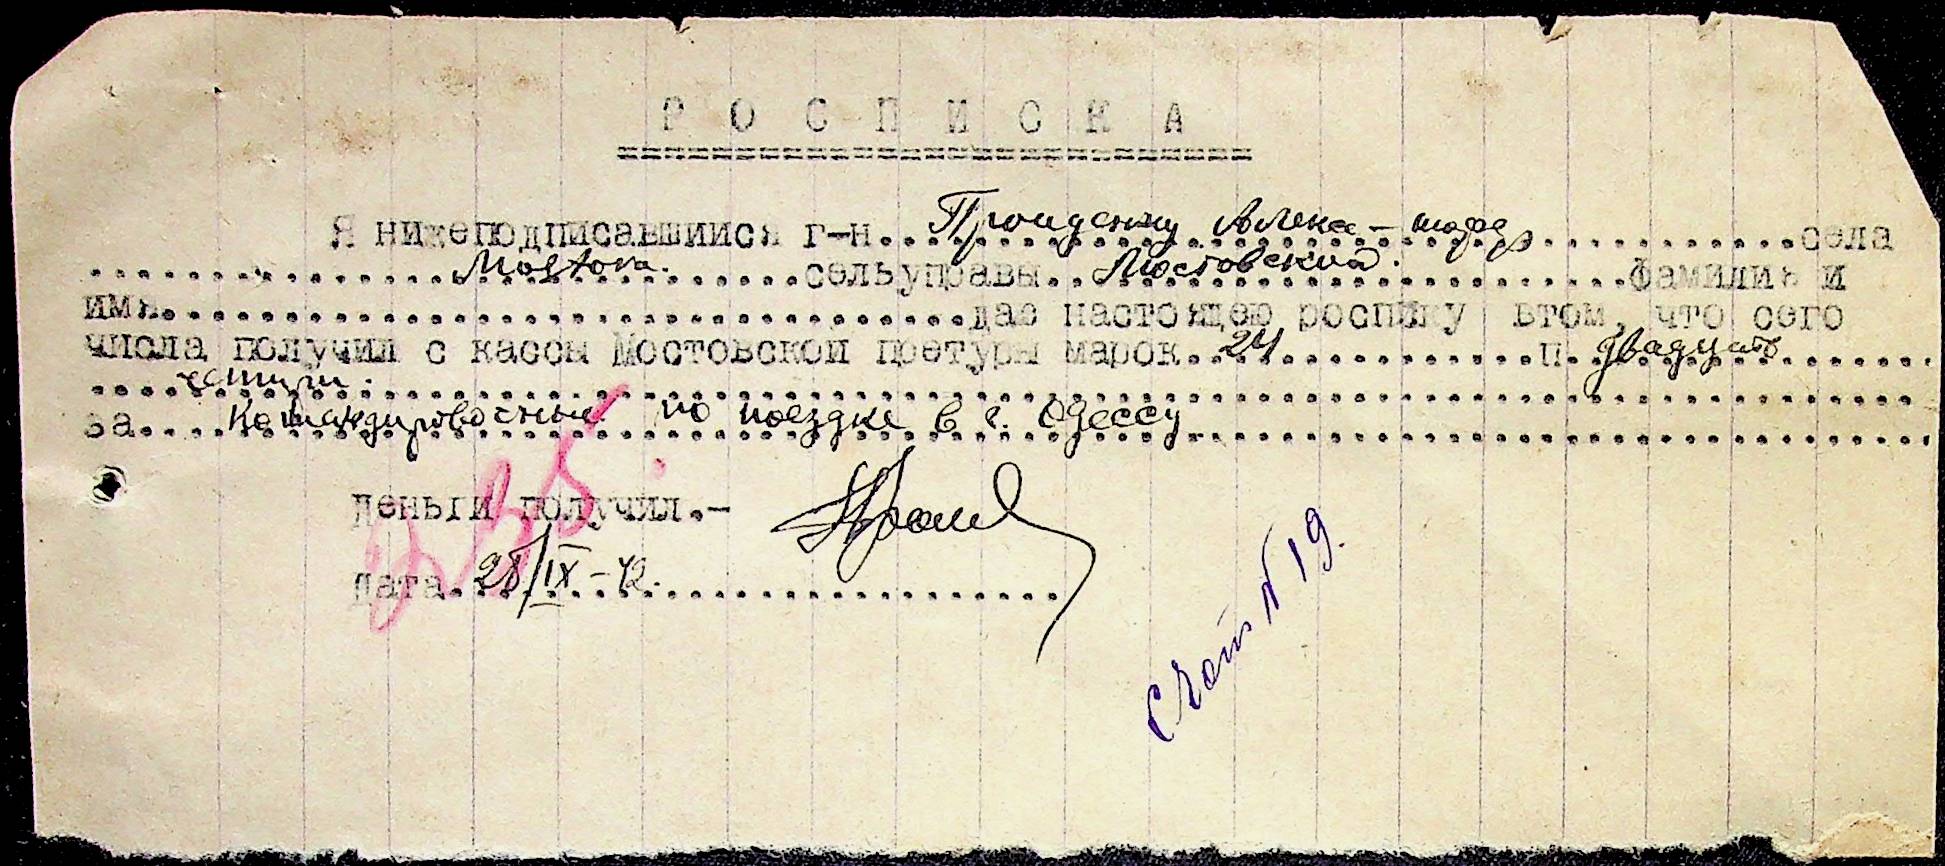 РОСПИСКА
Я нижеподписавшийся г-н. Проценку Алекс- село
Mostova. сельуправы Мостовской. фамилия и
имя даю настоящую росписку втом, что сего
числа получил с кассы Мостовской претуры марок 24 п. двадцать
четыри.
за Командировочные по поездке в г. Одессу
Деньги получил.-
Дата 28/IX-42.
Счет N 19.